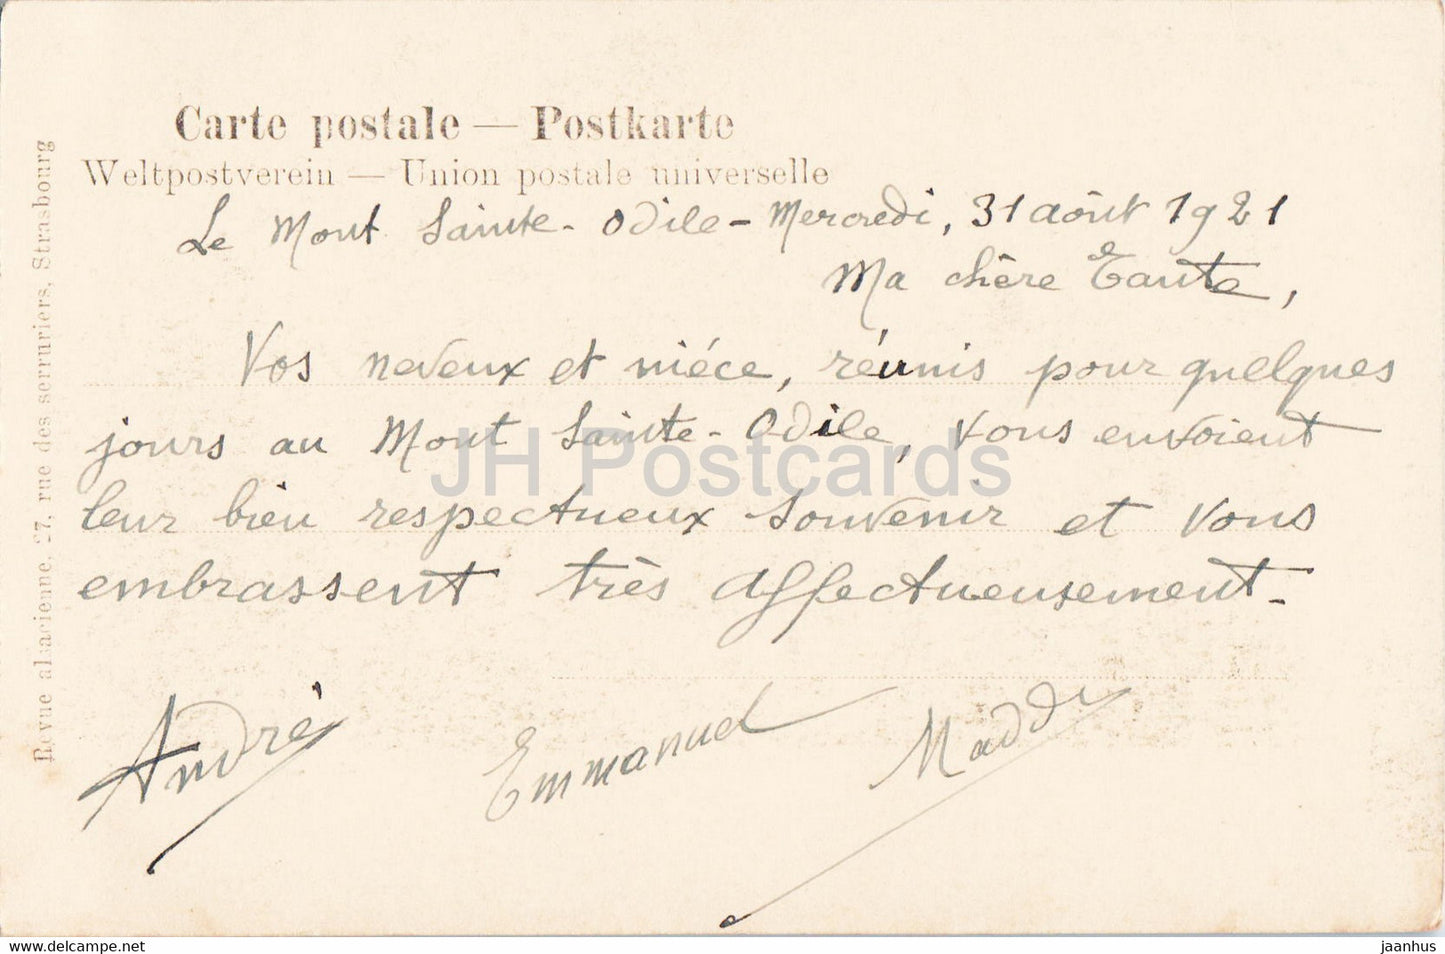 Carte postale — Postkarte
Weltpostverein — Union postale universelle
Le Mont Sainte-Odile - Mercredi, 31 août 1921
Ma chère Tante,
Vos neveux et nièce, réunis pour quelques
jours au Mont Sainte-Odile, vous envoient
leur bien respectueux souvenir et vous
embrassent très affectueusement.
André Emmanuel Maddy
Revue alsacienne, 27, rue des serruriers, Strasbourg
JH Postcards
www.delcampe.net
jaanhus